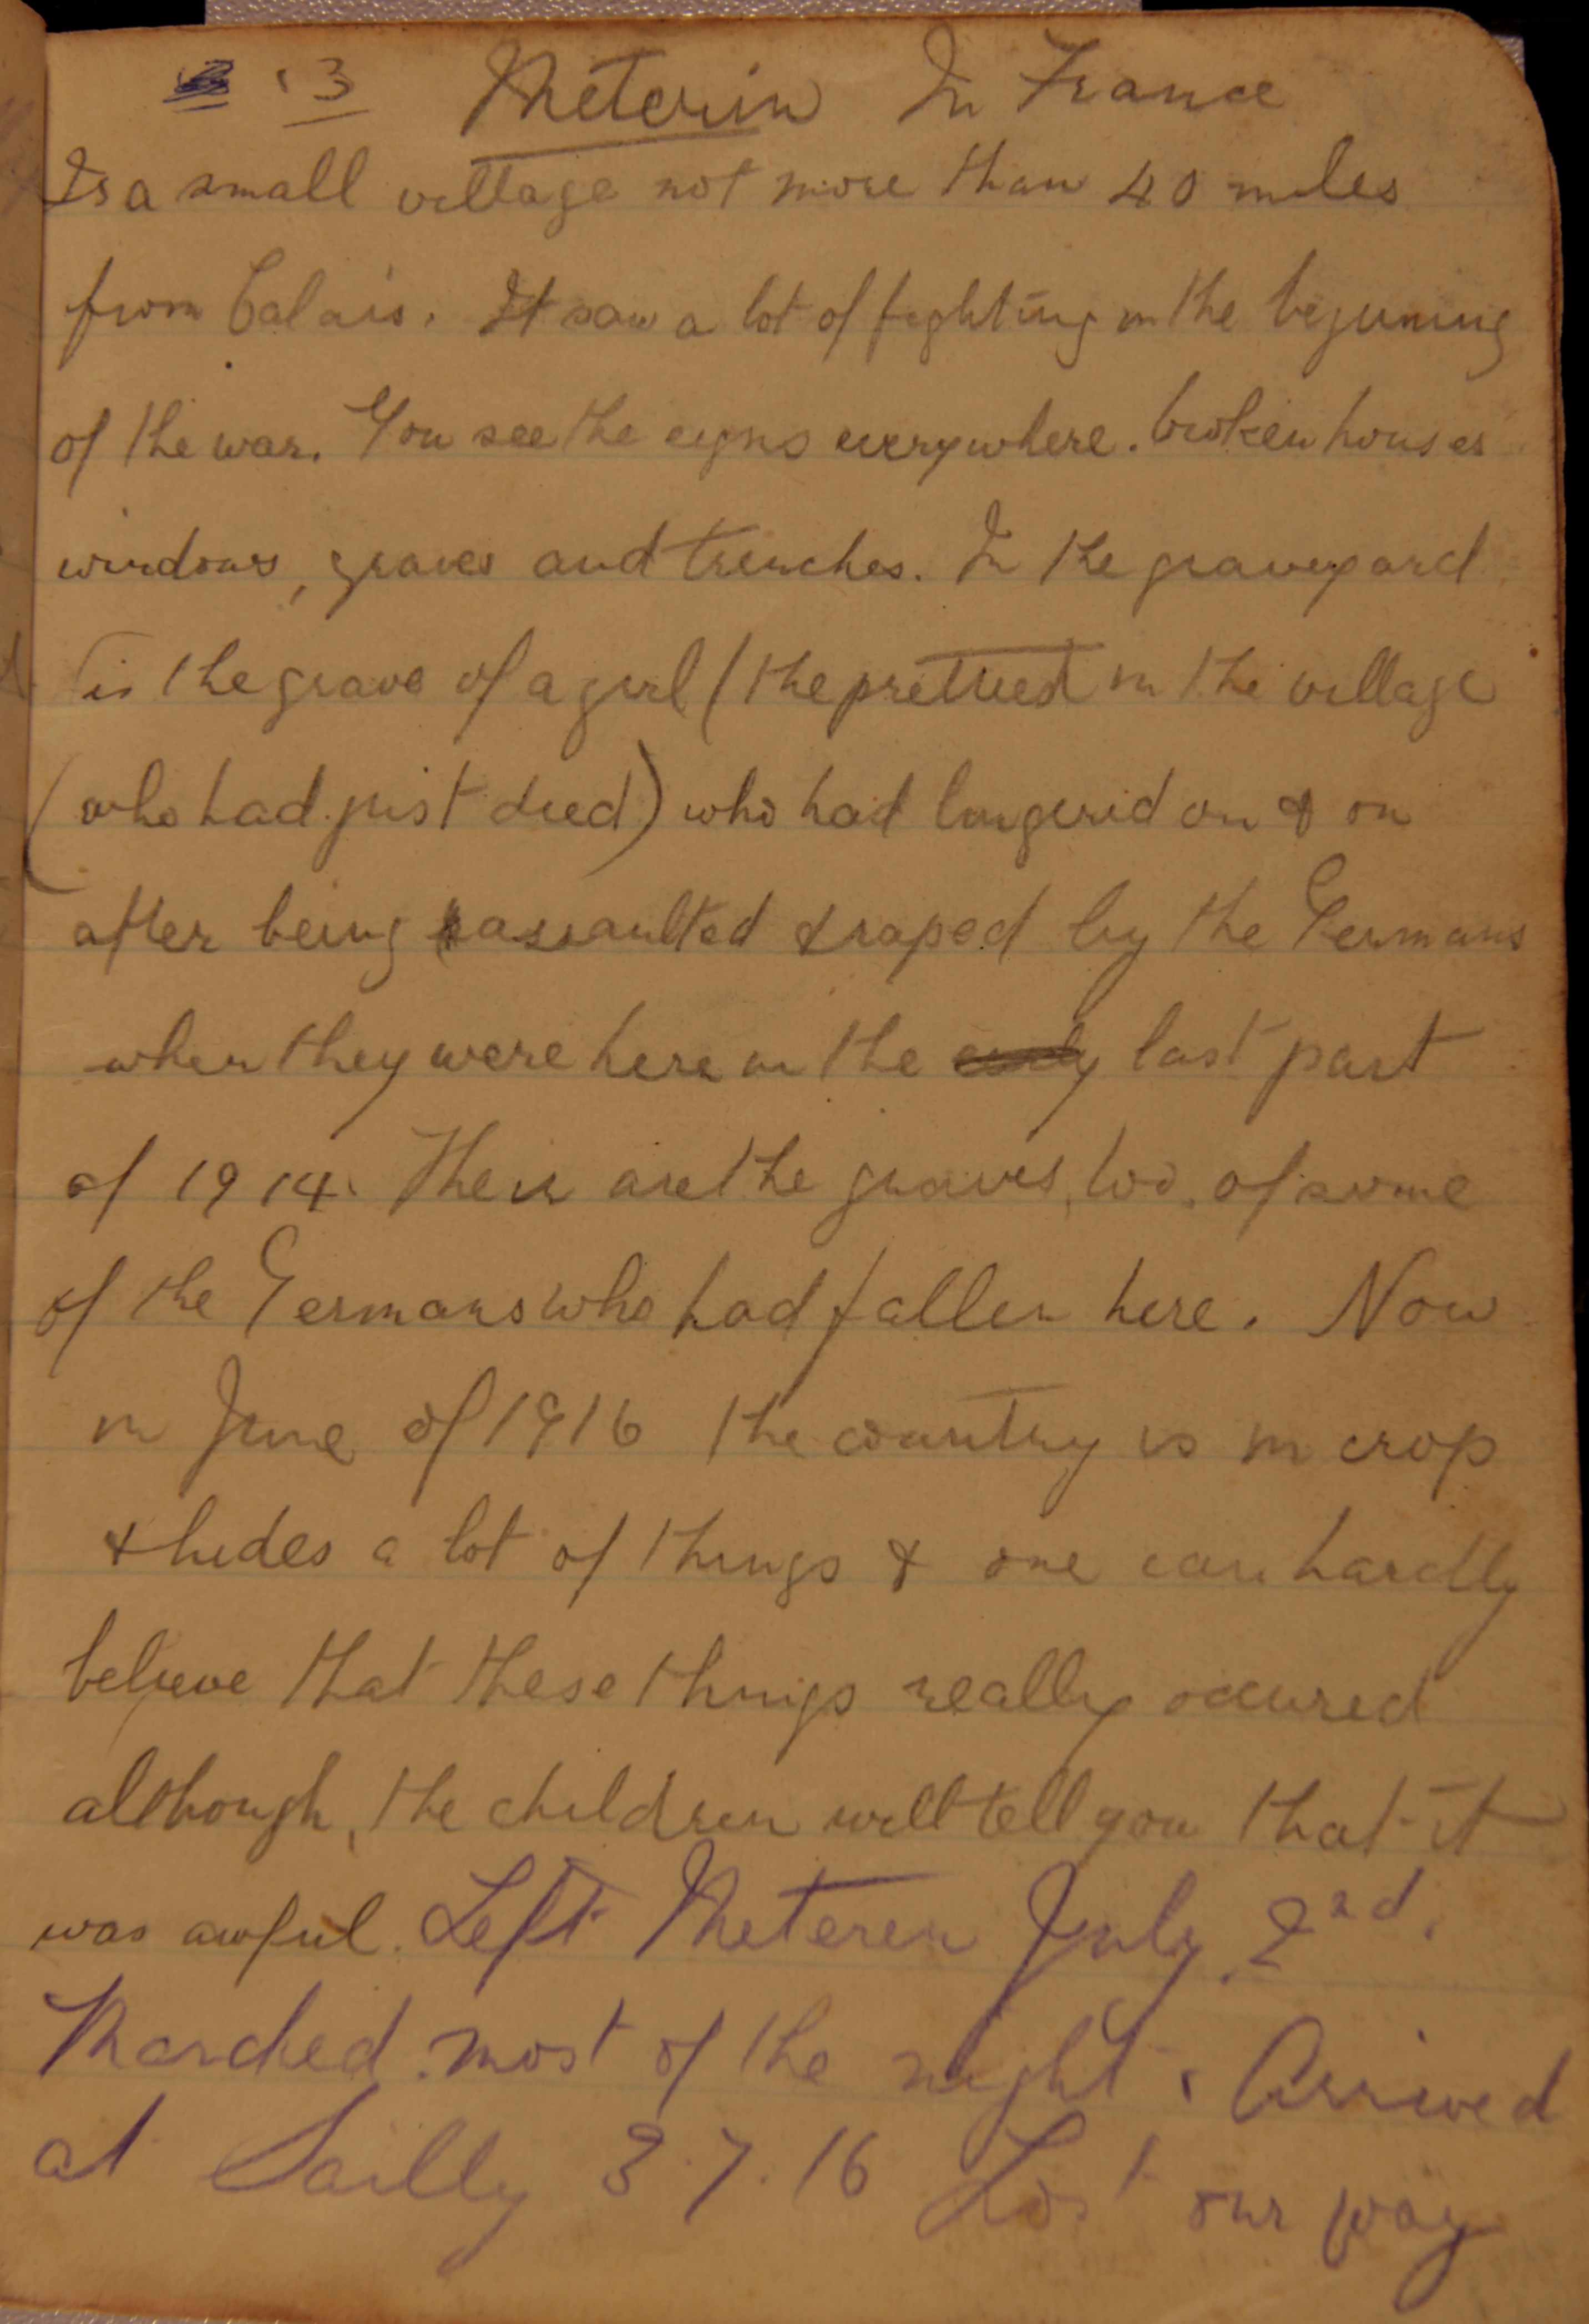 13 Meterin In France
Is a small village not more than 40 miles
from Calais. It saw a lot of fighting in the beginning
of the war. You see the signs everywhere. broken houses
windows, graves and trenches. In the graveyard
is the grave of a girl (the prettiest in the village
(who had just died) who had lingerid on & on
after being assaulted & raped by the Germans
when they were here in the early last part
of 1914. Their are the graves, too, of some
of the Germans who had fallen here. Now
in June of 1916 the country is in crop
& hides a lot of things & one can hardly
believe that these things really occured
although, the children will tell you that it
was awful. Left Meteren July 2nd.
Marched most of the night. Arrived
at Sailly 3.7.16 Lost our way